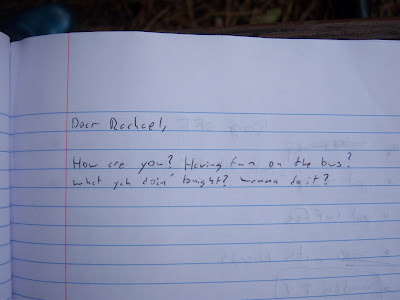 Dear Rachael,
How are you? Having fun on the bus?
what yah doin' tonight? wanna do it?